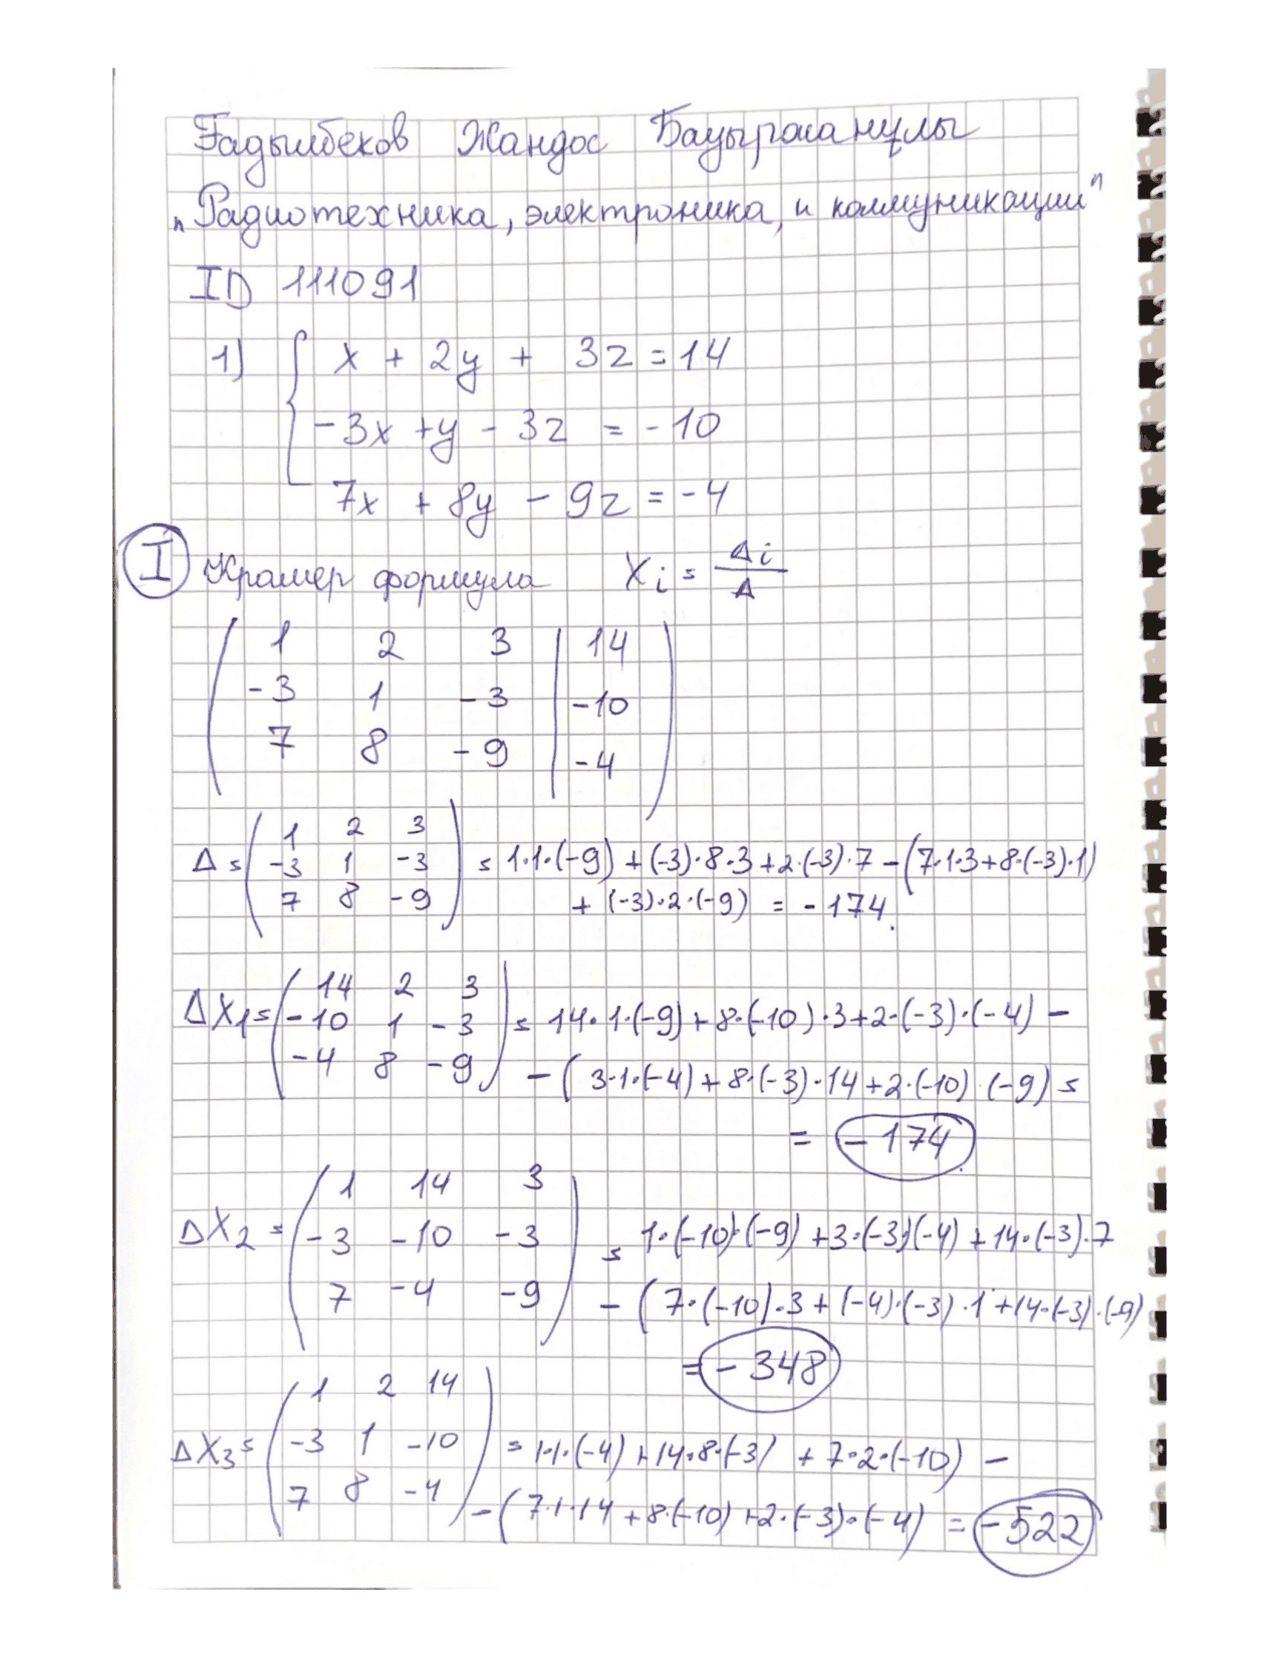 Fадылбеков Жандос Бауыржанұлы
"Радиотехника, электроника, и коммуникации"
ID 111091
1) { x + 2y + 3z = 14
-3x + y - 3z = -10
7x + 8y - 9z = -4
I Крамер формула Xi = Δi / Δ
1 2 3 | 14
-3 1 -3 | -10
7 8 -9 | -4
Δ = ( 1 2 3
-3 1 -3
7 8 -9 ) = 1·1·(-9) + (-3)·8·3 + 2·(-3)·7 - (7·1·3 + 8·(-3)·1)
+ (-3)·2·(-9) = -174.
ΔX1 = ( 14 2 3
-10 1 -3
-4 8 -9 ) = 14·1·(-9) + 8·(-10)·3 + 2·(-3)·(-4) -
- (3·1·(-4) + 8·(-3)·14 + 2·(-10)·(-9) =
= -174
ΔX2 = ( 1 14 3
-3 -10 -3
7 -4 -9 ) = 1·(-10)·(-9) + 3·(-3)(-4) + 14·(-3)·7
- (7·(-10)·3 + (-4)·(-3)·1 + 14·(-3)·(-9)
= -348
ΔX3 = ( 1 2 14
-3 1 -10
7 8 -4 ) = 1·1·(-4) + 14·8·(-3) + 7·2·(-10) -
- (7·1·14 + 8·(-10) + 2·(-3)·(-4) = -522